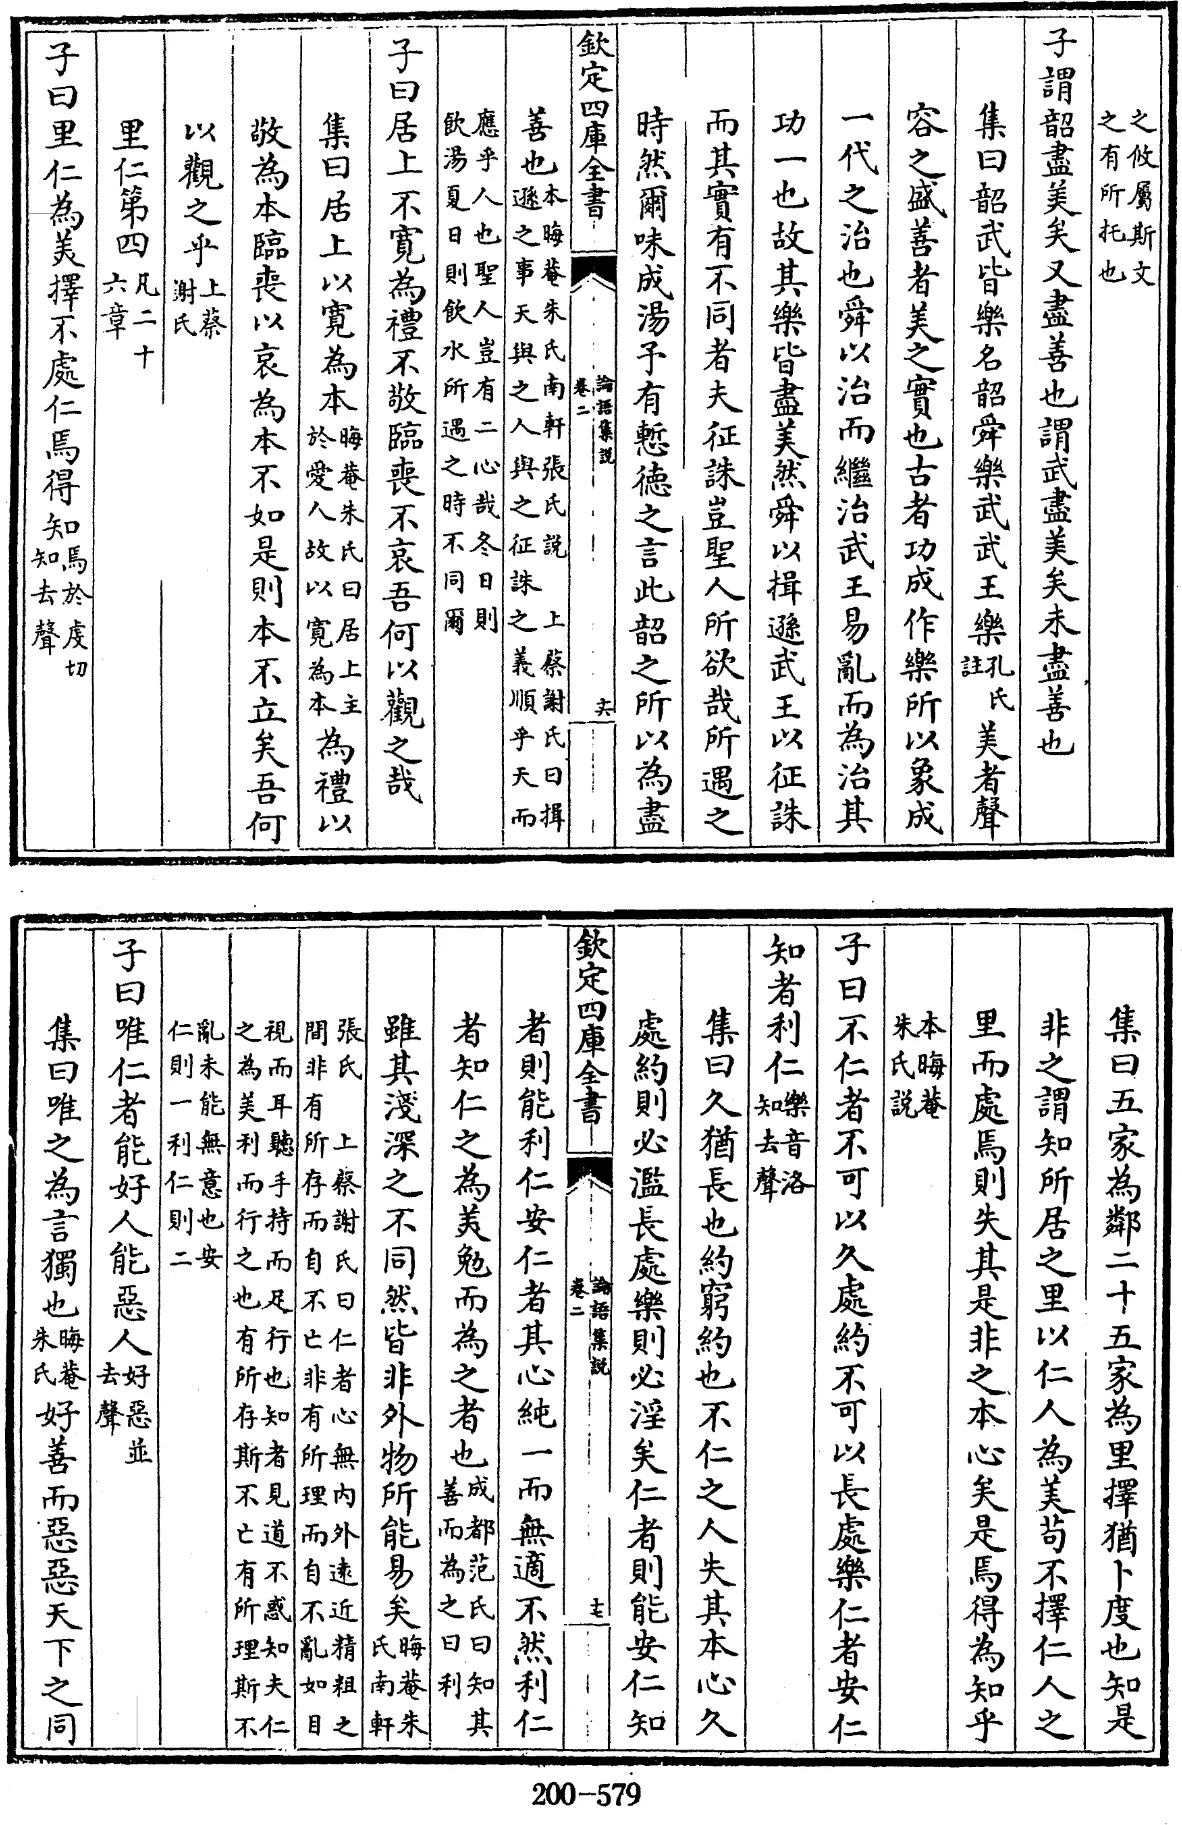 之攸屬斯文
之有所托也
子謂韶盡美矣又盡善也謂武盡美矣未盡善也
集曰韶武皆樂名韶舜樂武武王樂孔氏註美者聲
容之盛善者美之實也古者功成作樂所以象成
一代之治也舜以治而繼治武王易亂而為治其
功一也故其樂皆盡美然舜以揖遜武王以征誅
而其實有不同者夫征誅豈聖人所欲哉所遇之
時然爾味成湯予有慙德之言此韶之所以為盡
欽定四庫全書
論語集說
卷二
十六
善也本晦菴朱氏南軒張氏說 上蔡謝氏曰揖遜之事天與之人與之征誅之義順乎天而
應乎人也聖人豈有二心哉冬日則飲湯夏日則飲水所遇之時不同爾
子曰居上不寬為禮不敬臨喪不哀吾何以觀之哉
集曰居上以寬為本晦菴朱氏曰居上主於愛人故以寬為本為禮以
敬為本臨喪以哀為本不如是則本不立矣吾何
以觀之乎上蔡謝氏
里仁第四凡二十六章
子曰里仁為美擇不處仁焉得知焉於虔切知去聲
集曰五家為鄰二十五家為里擇猶卜度也知是
非之謂知所居之里以仁人為美苟不擇仁人之
里而處焉則失其是非之本心矣是焉得為知乎
本晦菴朱氏說
子曰不仁者不可以久處約不可以長處樂仁者安仁
知者利仁樂音洛知去聲
集曰久猶長也約窮約也不仁之人失其本心久
處約則必濫長處樂則必淫矣仁者則能安仁知
欽定四庫全書
論語集說
卷二
十七
者則能利仁安仁者其心純一而無適不然利仁
者知仁之為美勉而為之者也成都范氏曰知其善而為之曰利
雖其淺深之不同然皆非外物所能易矣晦菴朱氏南軒
張氏 上蔡謝氏曰仁者心無內外遠近精粗之間非有所存而自不亡非有所理而自不亂如目
視而耳聽手持而足行也知者見道不惑知夫仁之為美利而行之也有所存斯不亡有所理斯不
亂未能無意也安仁則一利仁則二
子曰唯仁者能好人能惡人好惡並去聲
集曰唯之為言獨也晦菴朱氏好善而惡惡天下之同
200-579